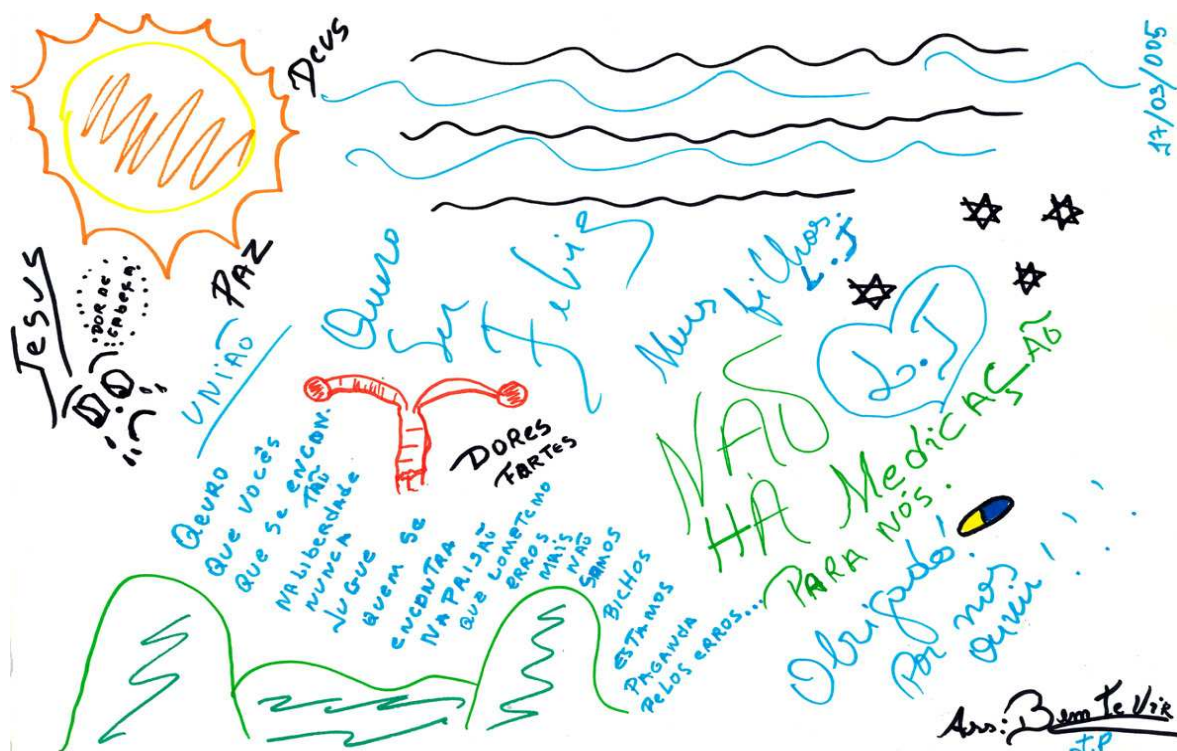 DEUS
17/03/005
JESUS
DOR DE
CABEÇA
PAZ
UNIÃO
Quero
Ser
Feliz
Meus filhos.
L.J
L.J
DORES
FORTES
NÃO
HÁ MedicAÇÃO
PARA NÓS.
QEURO
QUE VOCÊS
QUE SE ENCON.
TÃO
NA LIBERDADE
NUNCA
JUGUE
QUEM SE
ENCONTRA
NA PRISÃO
QUE COMETEMO
ERROS
MAIS
NÃO
SOMOS
BICHOS
ESTAMOS
PAGANDA
PELOS ERROS...
Obrigado!
Por nos
ouvir!
Ass: Bem Te Vir